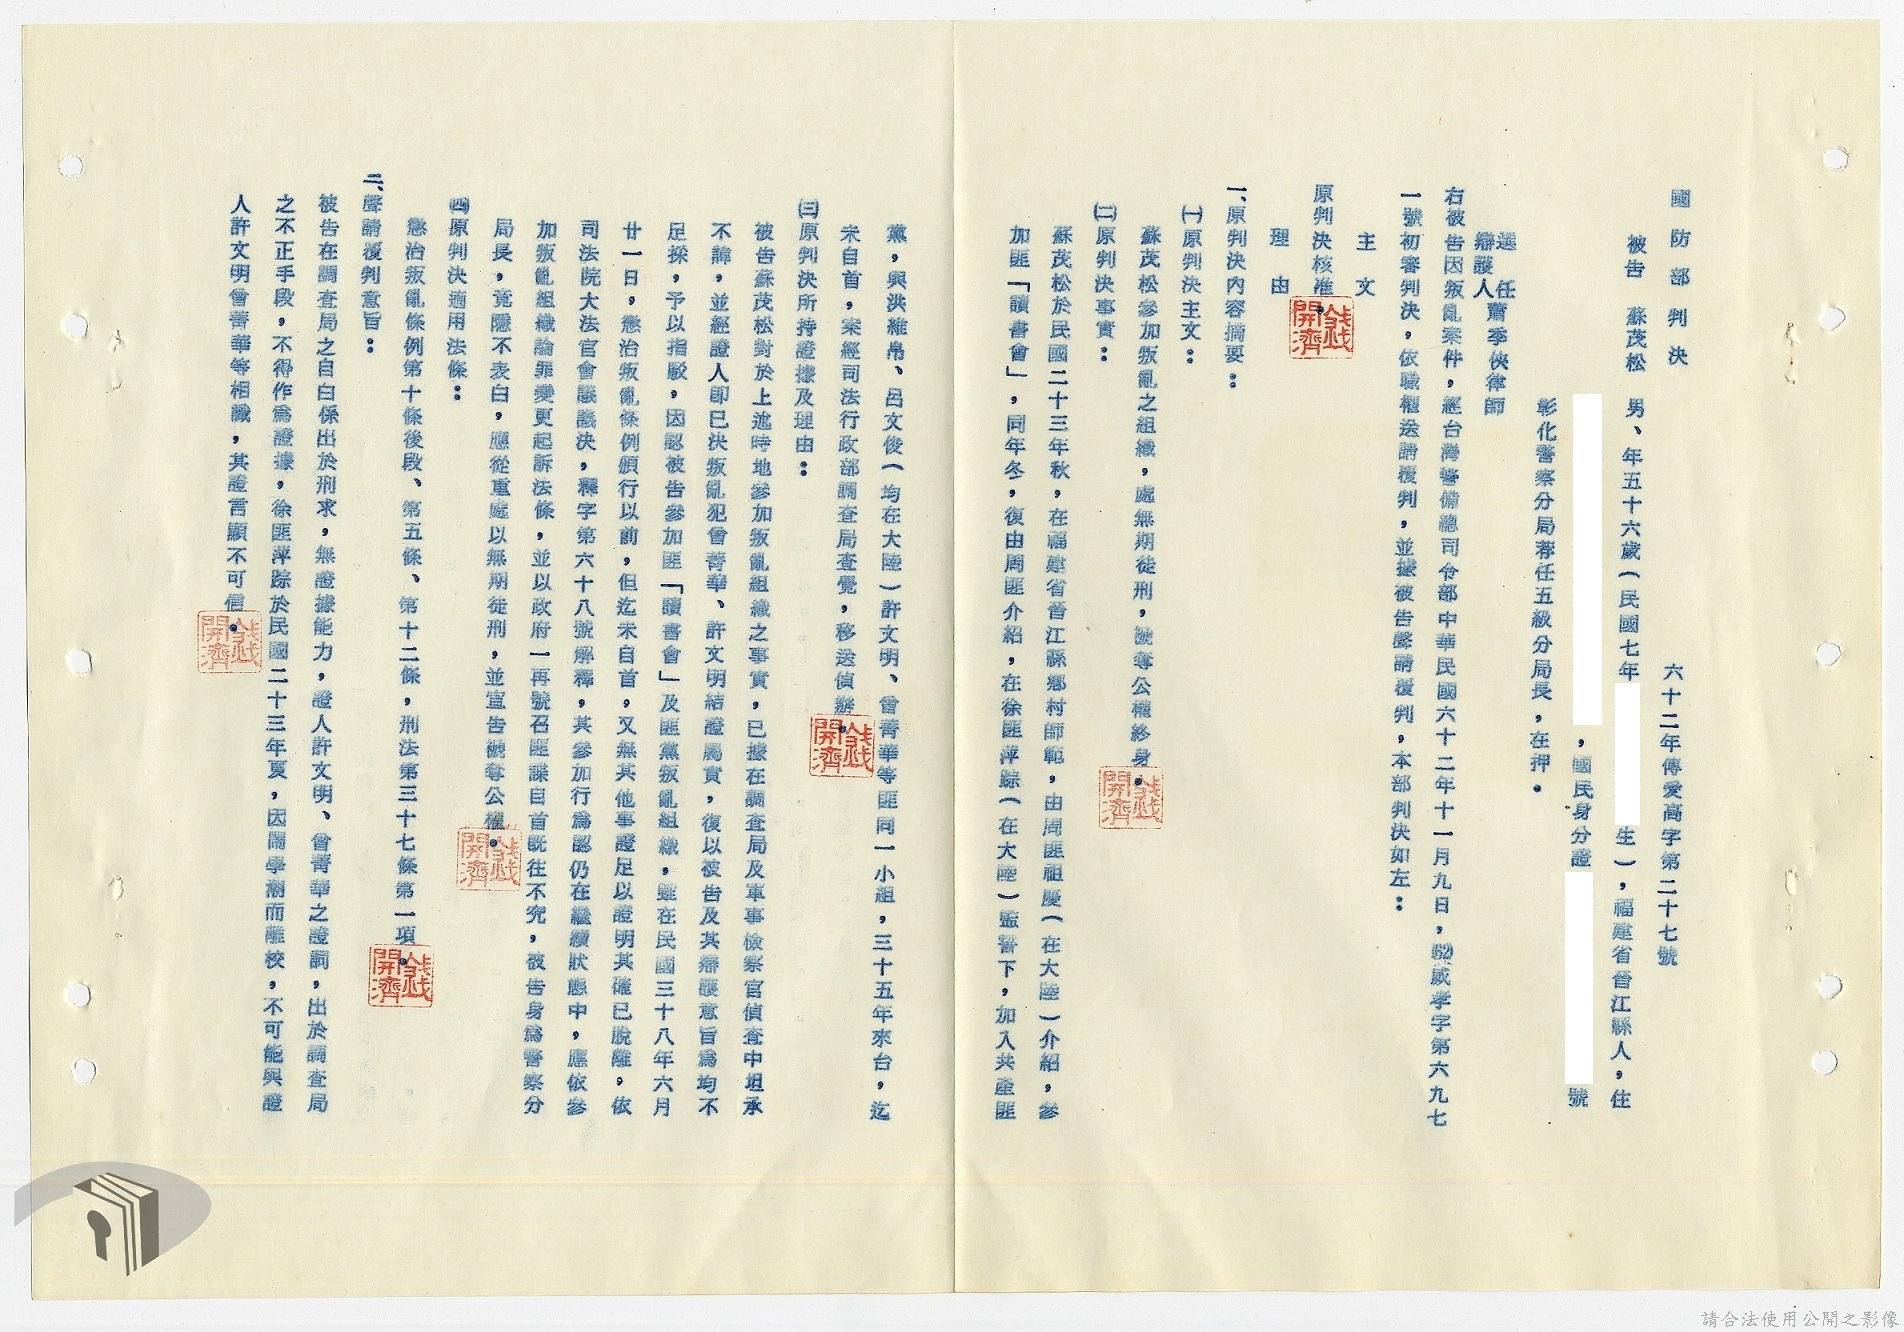 國防部判決
六十二年傳愛高字第二十七號
被告 蘇茂松 男、年五十六歲(民國七年
生),福建省晉江縣人,住
,國民身分證
號
彰化警察分局荐任五級分局長,在押。
選任
辯護人 蕭季俠律師
右被告因叛亂案件,經台灣警備總司令部中華民國六十二年十一月九日,(62)威孝字第六九七
一號初審判決,依職權送請覆判,並據被告聲請覆判,本部判決如左:
主文
原判決核准。
理由
一、原判決內容摘要:
㈠原判決主文:
蘇茂松參加叛亂之組織,處無期徒刑,褫奪公權終身。
㈡原判決事實:
蘇茂松於民國二十三年秋,在福建省晉江縣鄉村師範,由周匪祖慶(在大陸)介紹,參
加匪「讀書會」,同年冬,復由周匪介紹,在徐匪萍踪(在大陸)監誓下,加入共產匪
黨,與洪維帛、呂文俊(均在大陸)許文明、曾菁華等匪同一小組,三十五年來台,迄
未自首,案經司法行政部調查局查覺,移送偵辦。
㈢原判決所持證據及理由:
被告蘇茂松對於上述時地參加叛亂組織之事實,已據在調查局及軍事檢察官偵查中坦承
不諱,並經證人即已決叛亂犯曾菁華、許文明結證屬實,復以被告及其辯護意旨為均不
足採,予以指駁,因認被告參加匪「讀書會」及匪黨叛亂組織,雖在民國三十八年六月
廿一日,懲治叛亂條例頒行以前,但迄未自首,又無其他事證足以證明其確已脫離,依
司法院大法官會議議決,釋字第六十八號解釋,其參加行為認仍在繼續狀態中,應依參
加叛亂組織論罪變更起訴法條,並以政府一再號召匪諜自首既往不究,被告身為警察分
局長,竟隱不表白,應從重處以無期徒刑,並宣告褫奪公權。
㈣原判決適用法條:
懲治叛亂條例第十條後段、第五條、第十二條,刑法第三十七條第一項。
二、聲請覆判意旨:
被告在調查局之自白係出於刑求,無證據能力,證人許文明、曾菁華之證詞,出於調查局
之不正手段,不得作為證據,徐匪萍踪於民國二十三年夏,因鬧學潮而離校,不可能與證
人許文明曾菁華等相識,其證言顯不可信。
錢開濟
錢開濟
錢開濟
錢開濟
錢開濟
錢開濟
請合法使用公開之影像